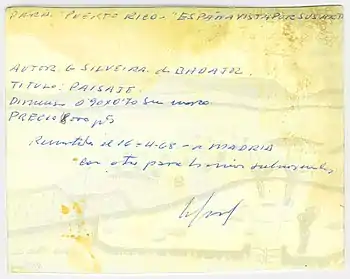 PARA "PUERTO RICO - "ESPAÑA VISTA POR SUS ART
AUTOR G SILVEIRA. de BADAJOZ.
TITULO: PAISAJE.
0'90X0'70 Sin marco
PRECIO 8000 pts
Remitida el 16-4-68 - a MADRID
con otro para